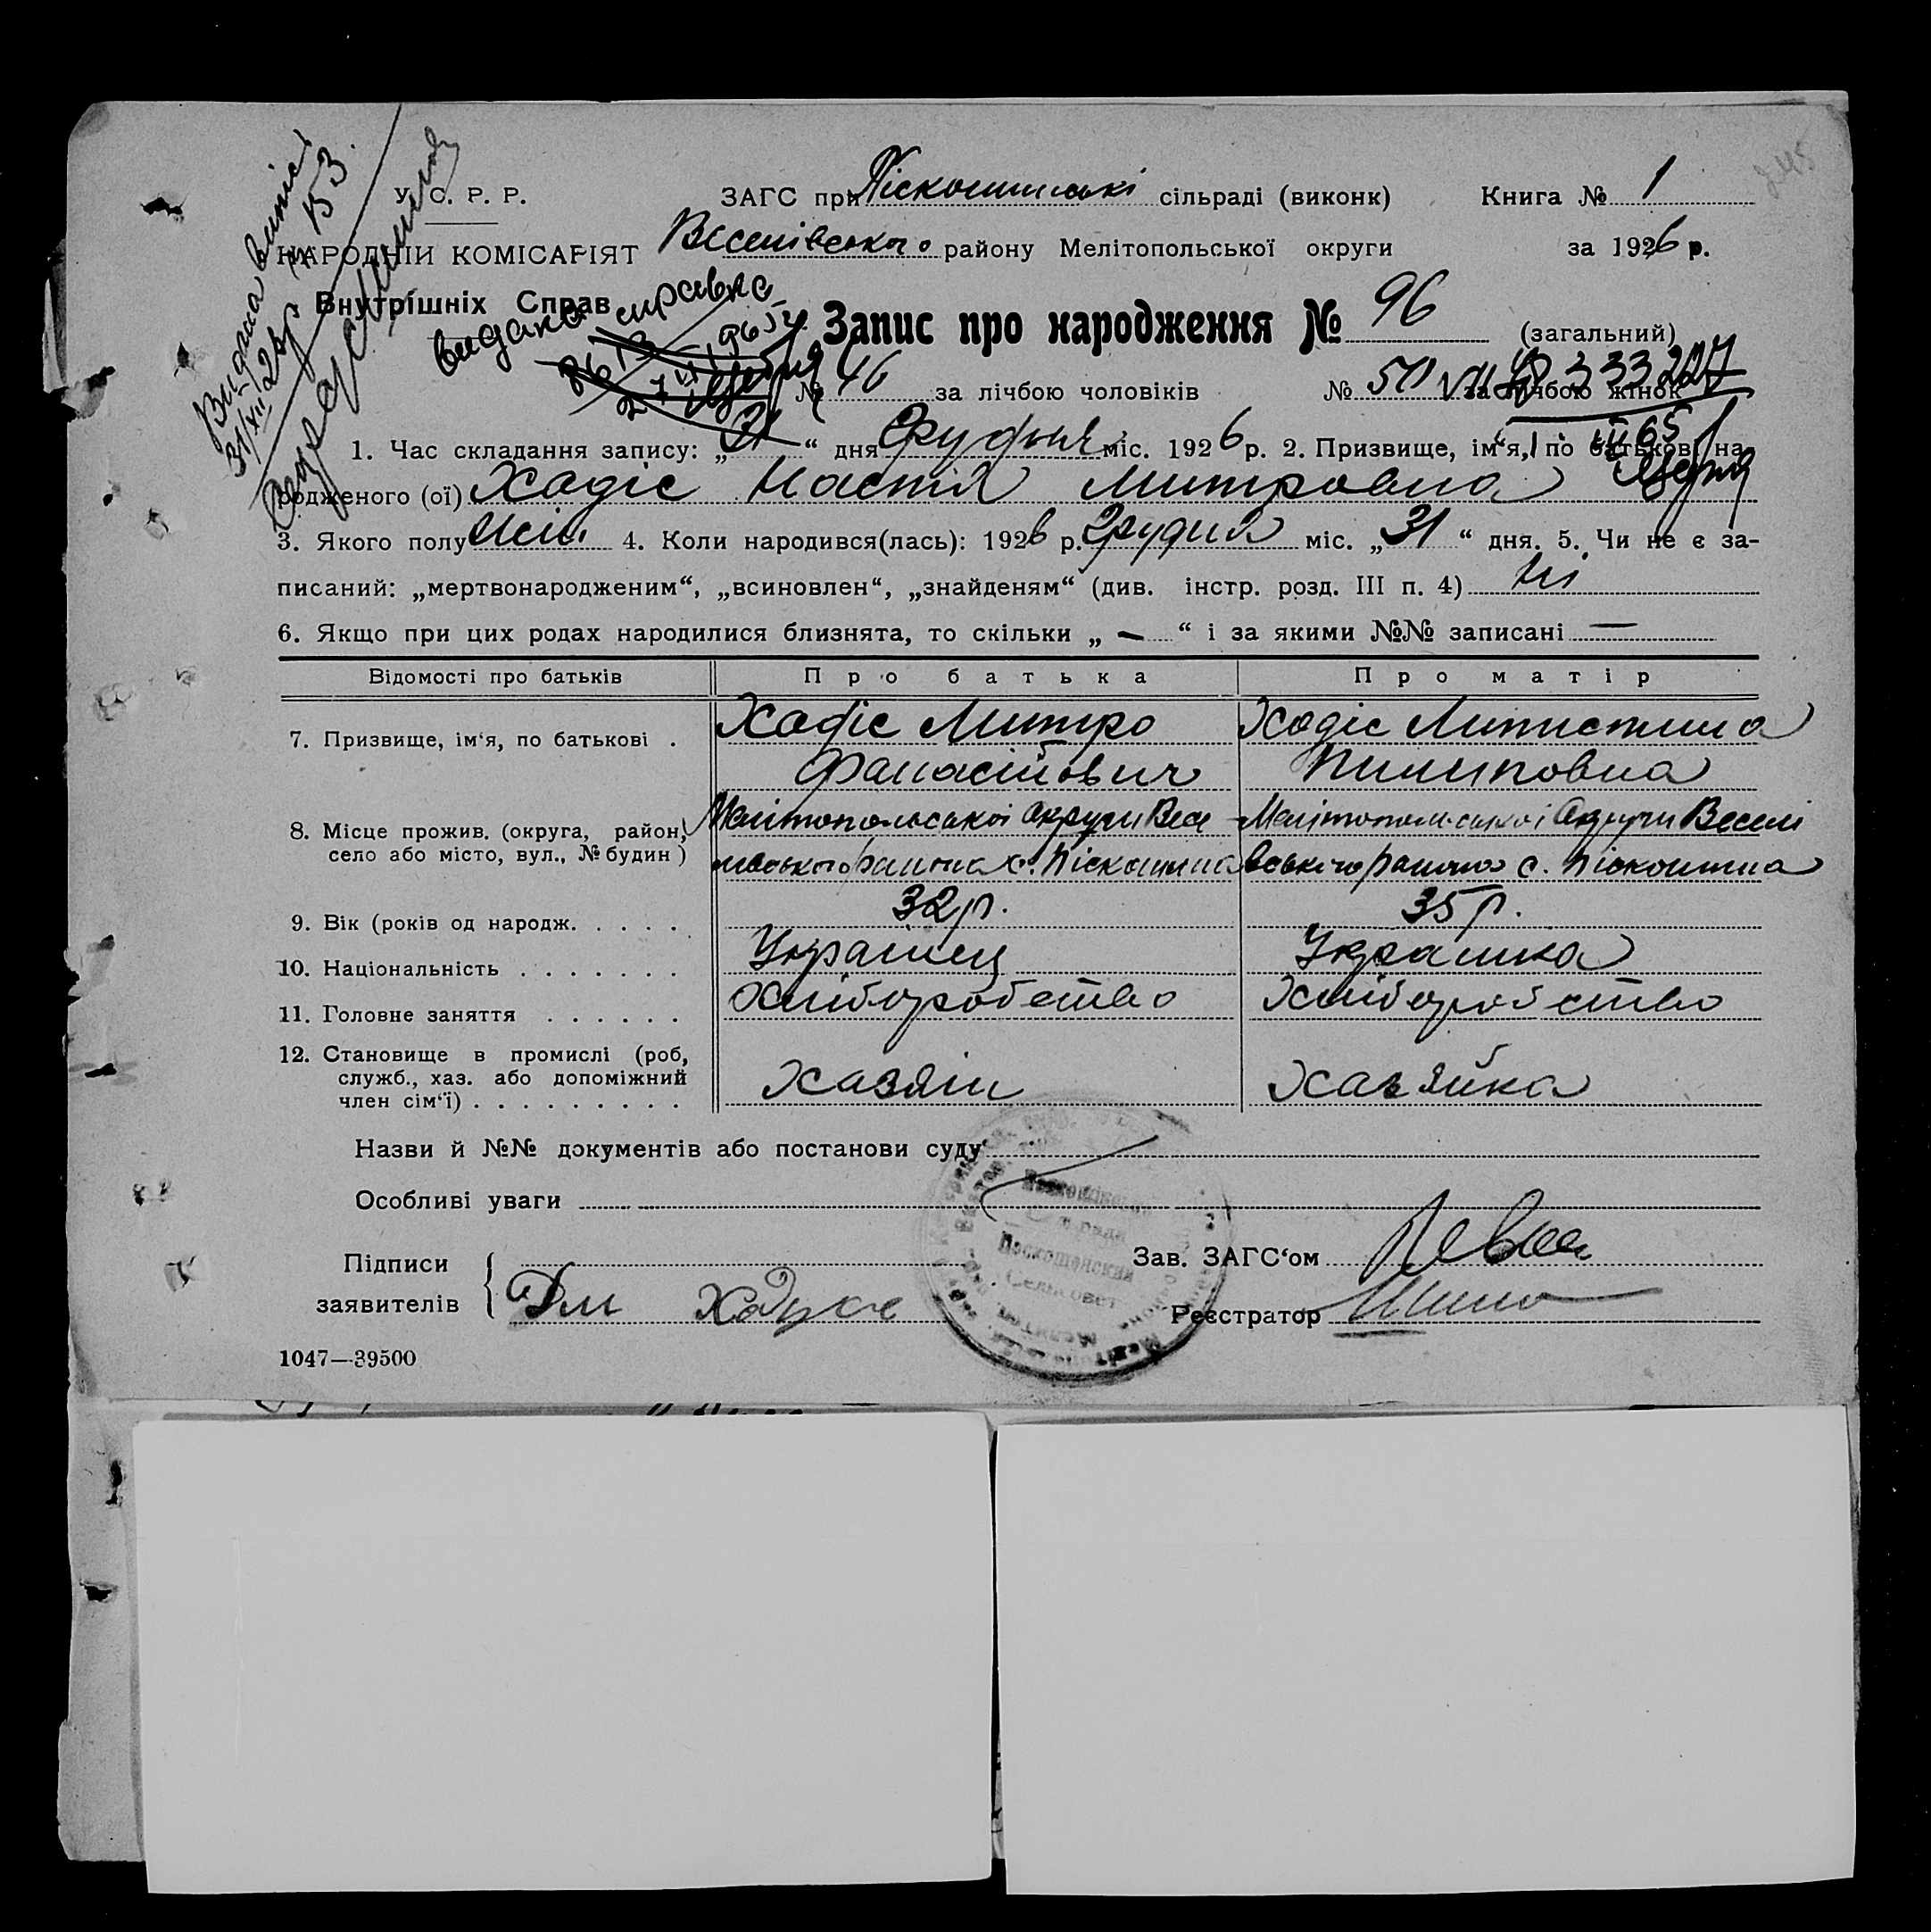 Видана виписка
31/XII 28р № 153.
У. С. Р. Р.
НАРОДНІЙ КОМІСАРІЯТ
Внутрішніх Справ
видана справка
ЗАГС при Піскошинські сільраді (виконк)
Веселівського району Мелітопольської округи
Книга № 1
за 1926 р.
245
Запис про народження № 96 (загальний)
№ 46 за лічбою чоловіків № 50 за лічбою жінок
1. Час складання запису: „31“ дня Грудня міс. 1926 р. 2. Призвище, ім‘я, по батькові на-
родженого (ої) Хадіс Настія Митровна
3. Якого полу жін. 4. Коли народився(лась): 1926 р. Грудня міс. „31“ дня. 5. Чи не є за-
писаний: „мертвонародженим“, „всиновлен“, „знайденям“ (див. інстр. розд. III п. 4) Ні
6. Якщо при цих родах народилися близнята, то скільки „ — “ і за якими №№ записані —
Відомості про батьків Про батька Про матір
7. Призвище, ім‘я, по батькові . Хадіс Митро Ходіс
Фанасійович Пилиповна
8. Місце прожив. (округа, район, Мелітопольської округи Весе Мелітопольської Округи Веселі
село або місто, вул., № будин) лівського району с. Піскошина вського району с. Піскошина
9. Вік (років од народж. . . . . . 32 р. 35 р.
10. Національність . . . . . . . Українец Украинка
11. Головне заняття . . . . . . Хліборобство Хліборобство
12. Становище в промислі (роб,
служб., хаз. або допоміжний Хазяїн Хазяйка
член сім‘ї) . . . . . . . . .
Назви й №№ документів або постанови суду
Особливі уваги
Підписи
заявителів Дм Ходисе
Зав. ЗАГС‘ом
Реєстратор
Сельсовет
1047—39500